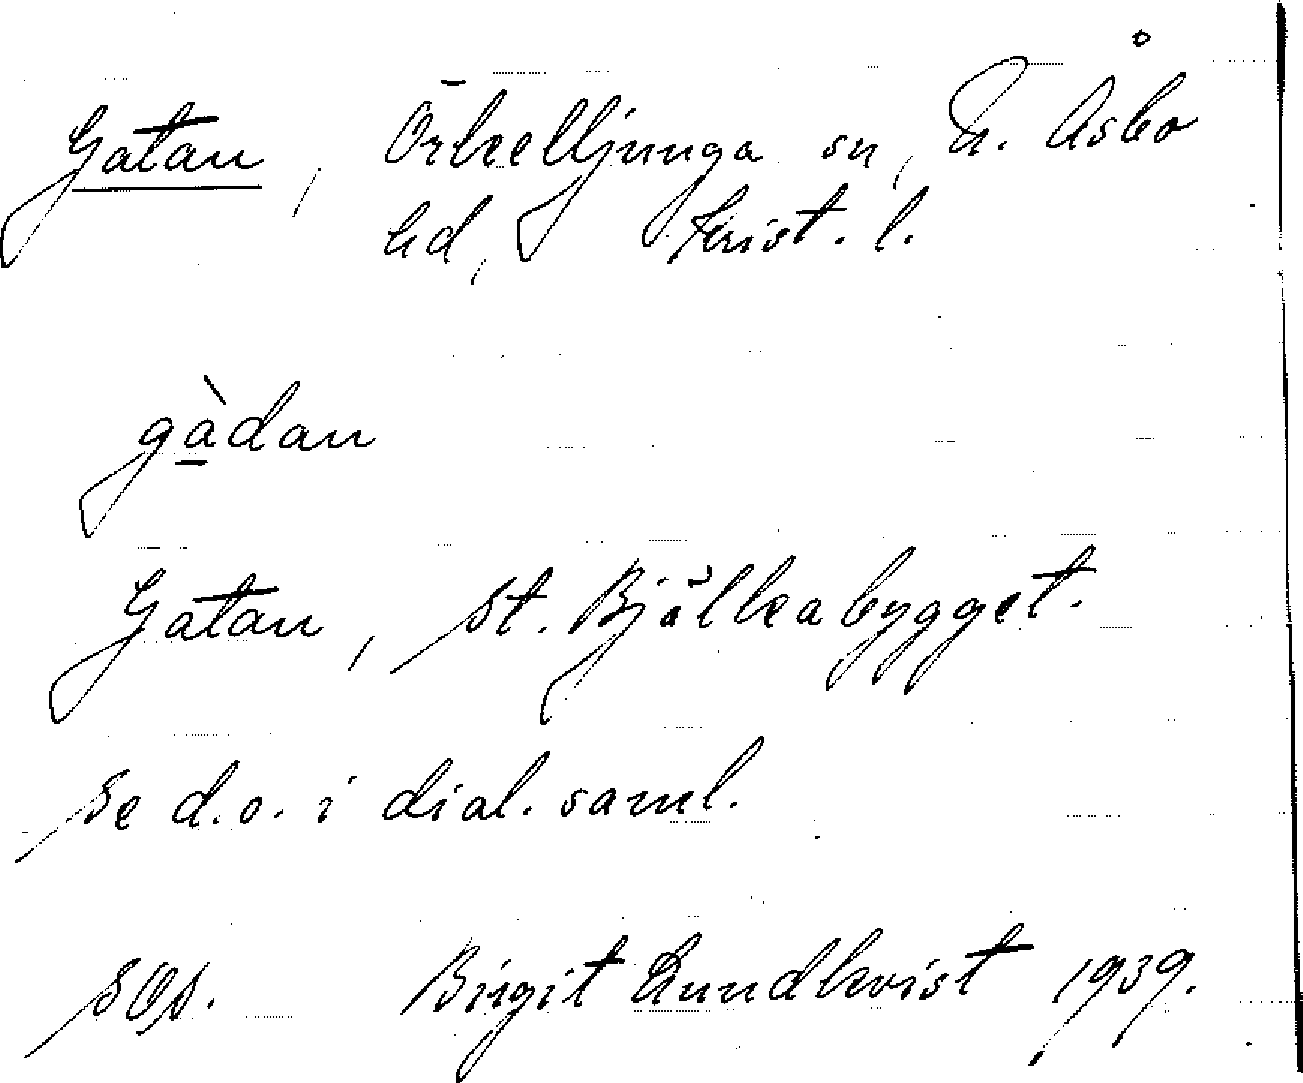 Gatan, Örkelljunga sn, N. Åsbo
hd, Krist. l.
gàdan
Gatan, St. Bjälkabygget.
Se d.o. i dial. saml.
Birgit Lundkvist 1939.